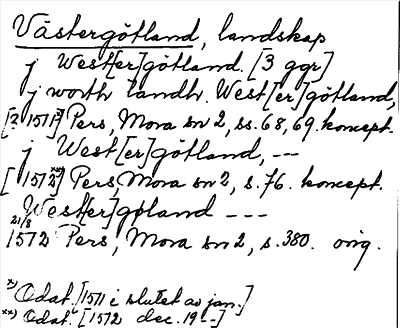 Västergötland, landskap
j West[er]götland. [3 ggr]
j worth landh. West[er]götland,
[? 1571]*) Pers, Mora sn 2, ss. 68, 69. koncept.
j West[er]götland, ---
[ 1572**)] Pers, Mora sn 2, s. 76. koncept.
West[er]götland ---
21/8
1572 Pers, Mora sn 2, s. 380. orig.
*) Odat. [1571 i slutet av jan.]
**) Odat. [1572 dec. 19--]